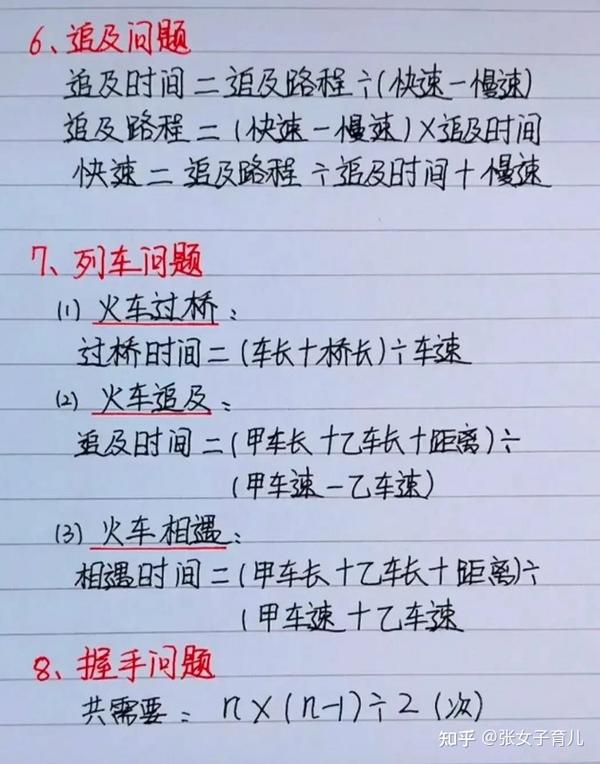 6、追及问题
追及时间=追及路程÷(快速-慢速)
追及路程=(快速-慢速)×追及时间
快速=追及路程÷追及时间+慢速
7、列车问题
(1) 火车过桥：
过桥时间=(车长+桥长)÷车速
(2) 火车追及：
追及时间=(甲车长+乙车长+距离)÷
(甲车速-乙车速)
(3) 火车相遇：
相遇时间=(甲车长+乙车长+距离)÷
(甲车速+乙车速
8、握手问题
共需要：n×(n-1)÷2 (次)
知乎 @张女子育儿